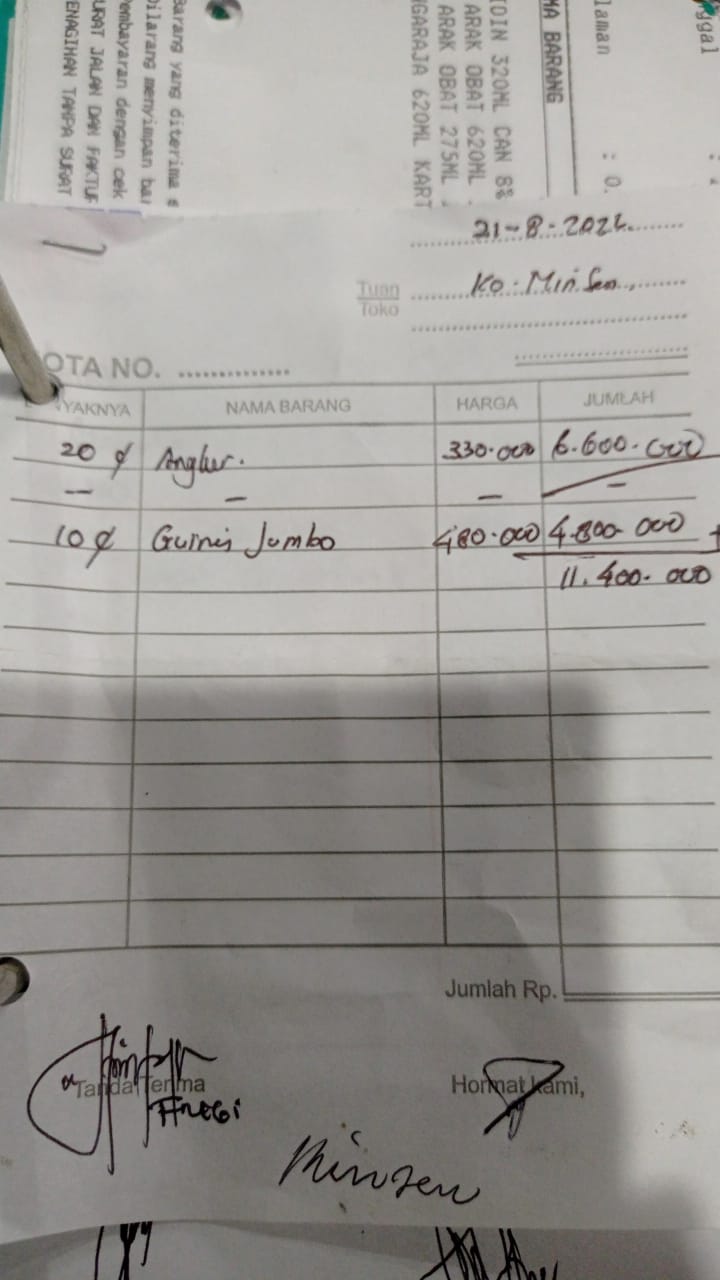 Barang yang diterima
Dilarang menyimpan
embayaran dengan cek
URAT JALAN DAN FAKTUR
ENAGIHAN TANPA SURAT
nggal
laman : 0.
MA BARANG
IDIN 320ML CAN 8%
ARAK OBAT 620ML
ARAK OBAT 275ML
GARAJA 620ML KART
21-8-2024
Tuan Ko. Min Sen
Toko
OTA NO. ..............
YAKNYA NAMA BARANG HARGA JUMLAH
20 ¢ Anglur. 330.000 6.600.000
— — — —
10 ¢ Guines Jumbo 480.000 4.800.000 +
11.400.000
Jumlah Rp.
Tanda Terima Hormat kami,
Minsen